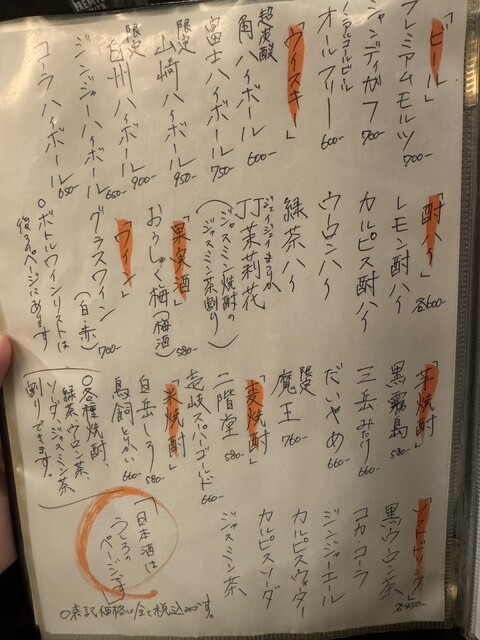 「ビール」
プレミアムモルツ 700-
シャンディガフ 700-
ノンアルコールビール
オールフリー 600-
「ウイスキー」
超炭酸
角ハイボール 600-
富士ハイボール 750-
限定
山崎ハイボール 950-
限定
白州ハイボール 900-
ジンジャーハイボール 650-
コーラハイボール 650-
「酎ハイ」
各600-
レモン酎ハイ
カルピス酎ハイ
ウーロンハイ
緑茶ハイ
ジェイジェイまつりか
JJ茉莉花
(ジャスミン焼酎の
ジャスミン茶割り)
「果実酒」
おうしゅく梅(梅酒) 580-
「ワイン」
グラスワイン(白・赤) 700-
○ボトルワインリストは
後ろのページにあります
「芋焼酎」
黒霧島 580-
三岳 みたけ 660-
だいやめ 660-
限定
魔王 760-
「麦焼酎」
二階堂 580-
壱岐スーパーゴールド 660-
「米焼酎」
白岳 しろ 580-
鳥飼 とりかい 660-
○各種焼酎、
緑茶、ウーロン茶、
ソーダ、ジャスミン茶
割りできます。
「ソフトドリンク」
各450-
黒ウーロン茶
コカ・コーラ
ジンジャーエール
カルピスウォーター
カルピスソーダ
ジャスミン茶
「日本酒は
うしろの
ページです」
○表記価格は全て税込みです。